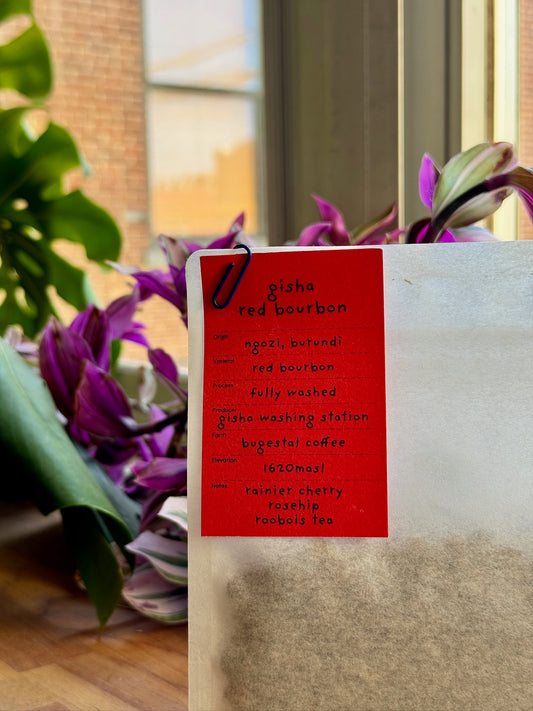 gisha
red bourbon
Origin
ngozi, burundi
Varietal
red bourbon
Process
fully washed
Producer
gisha washing station
Farm
bugestal coffee
Elevation
1620masl
Notes
rainier cherry
rosehip
roobois tea